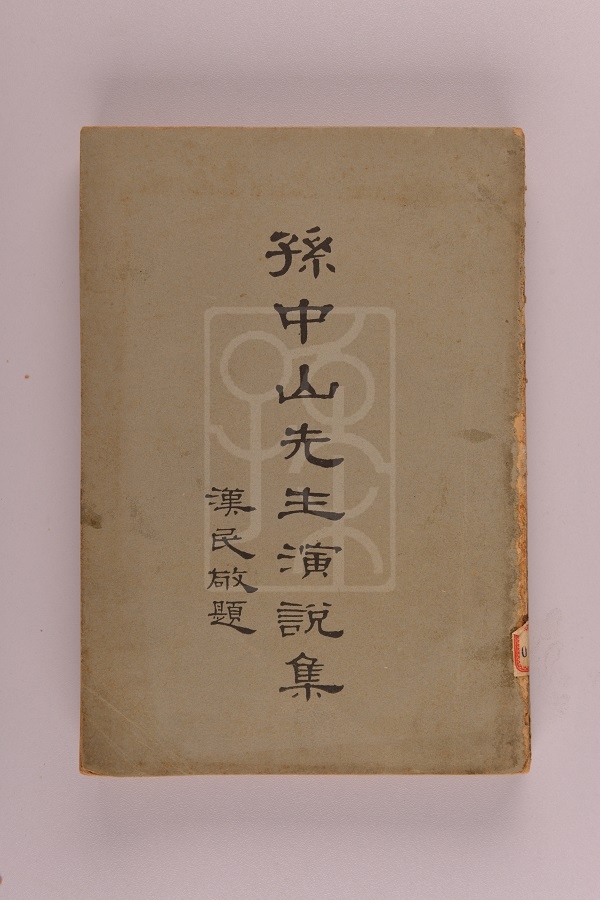 孫中山先生演說集
漢民敬題
0